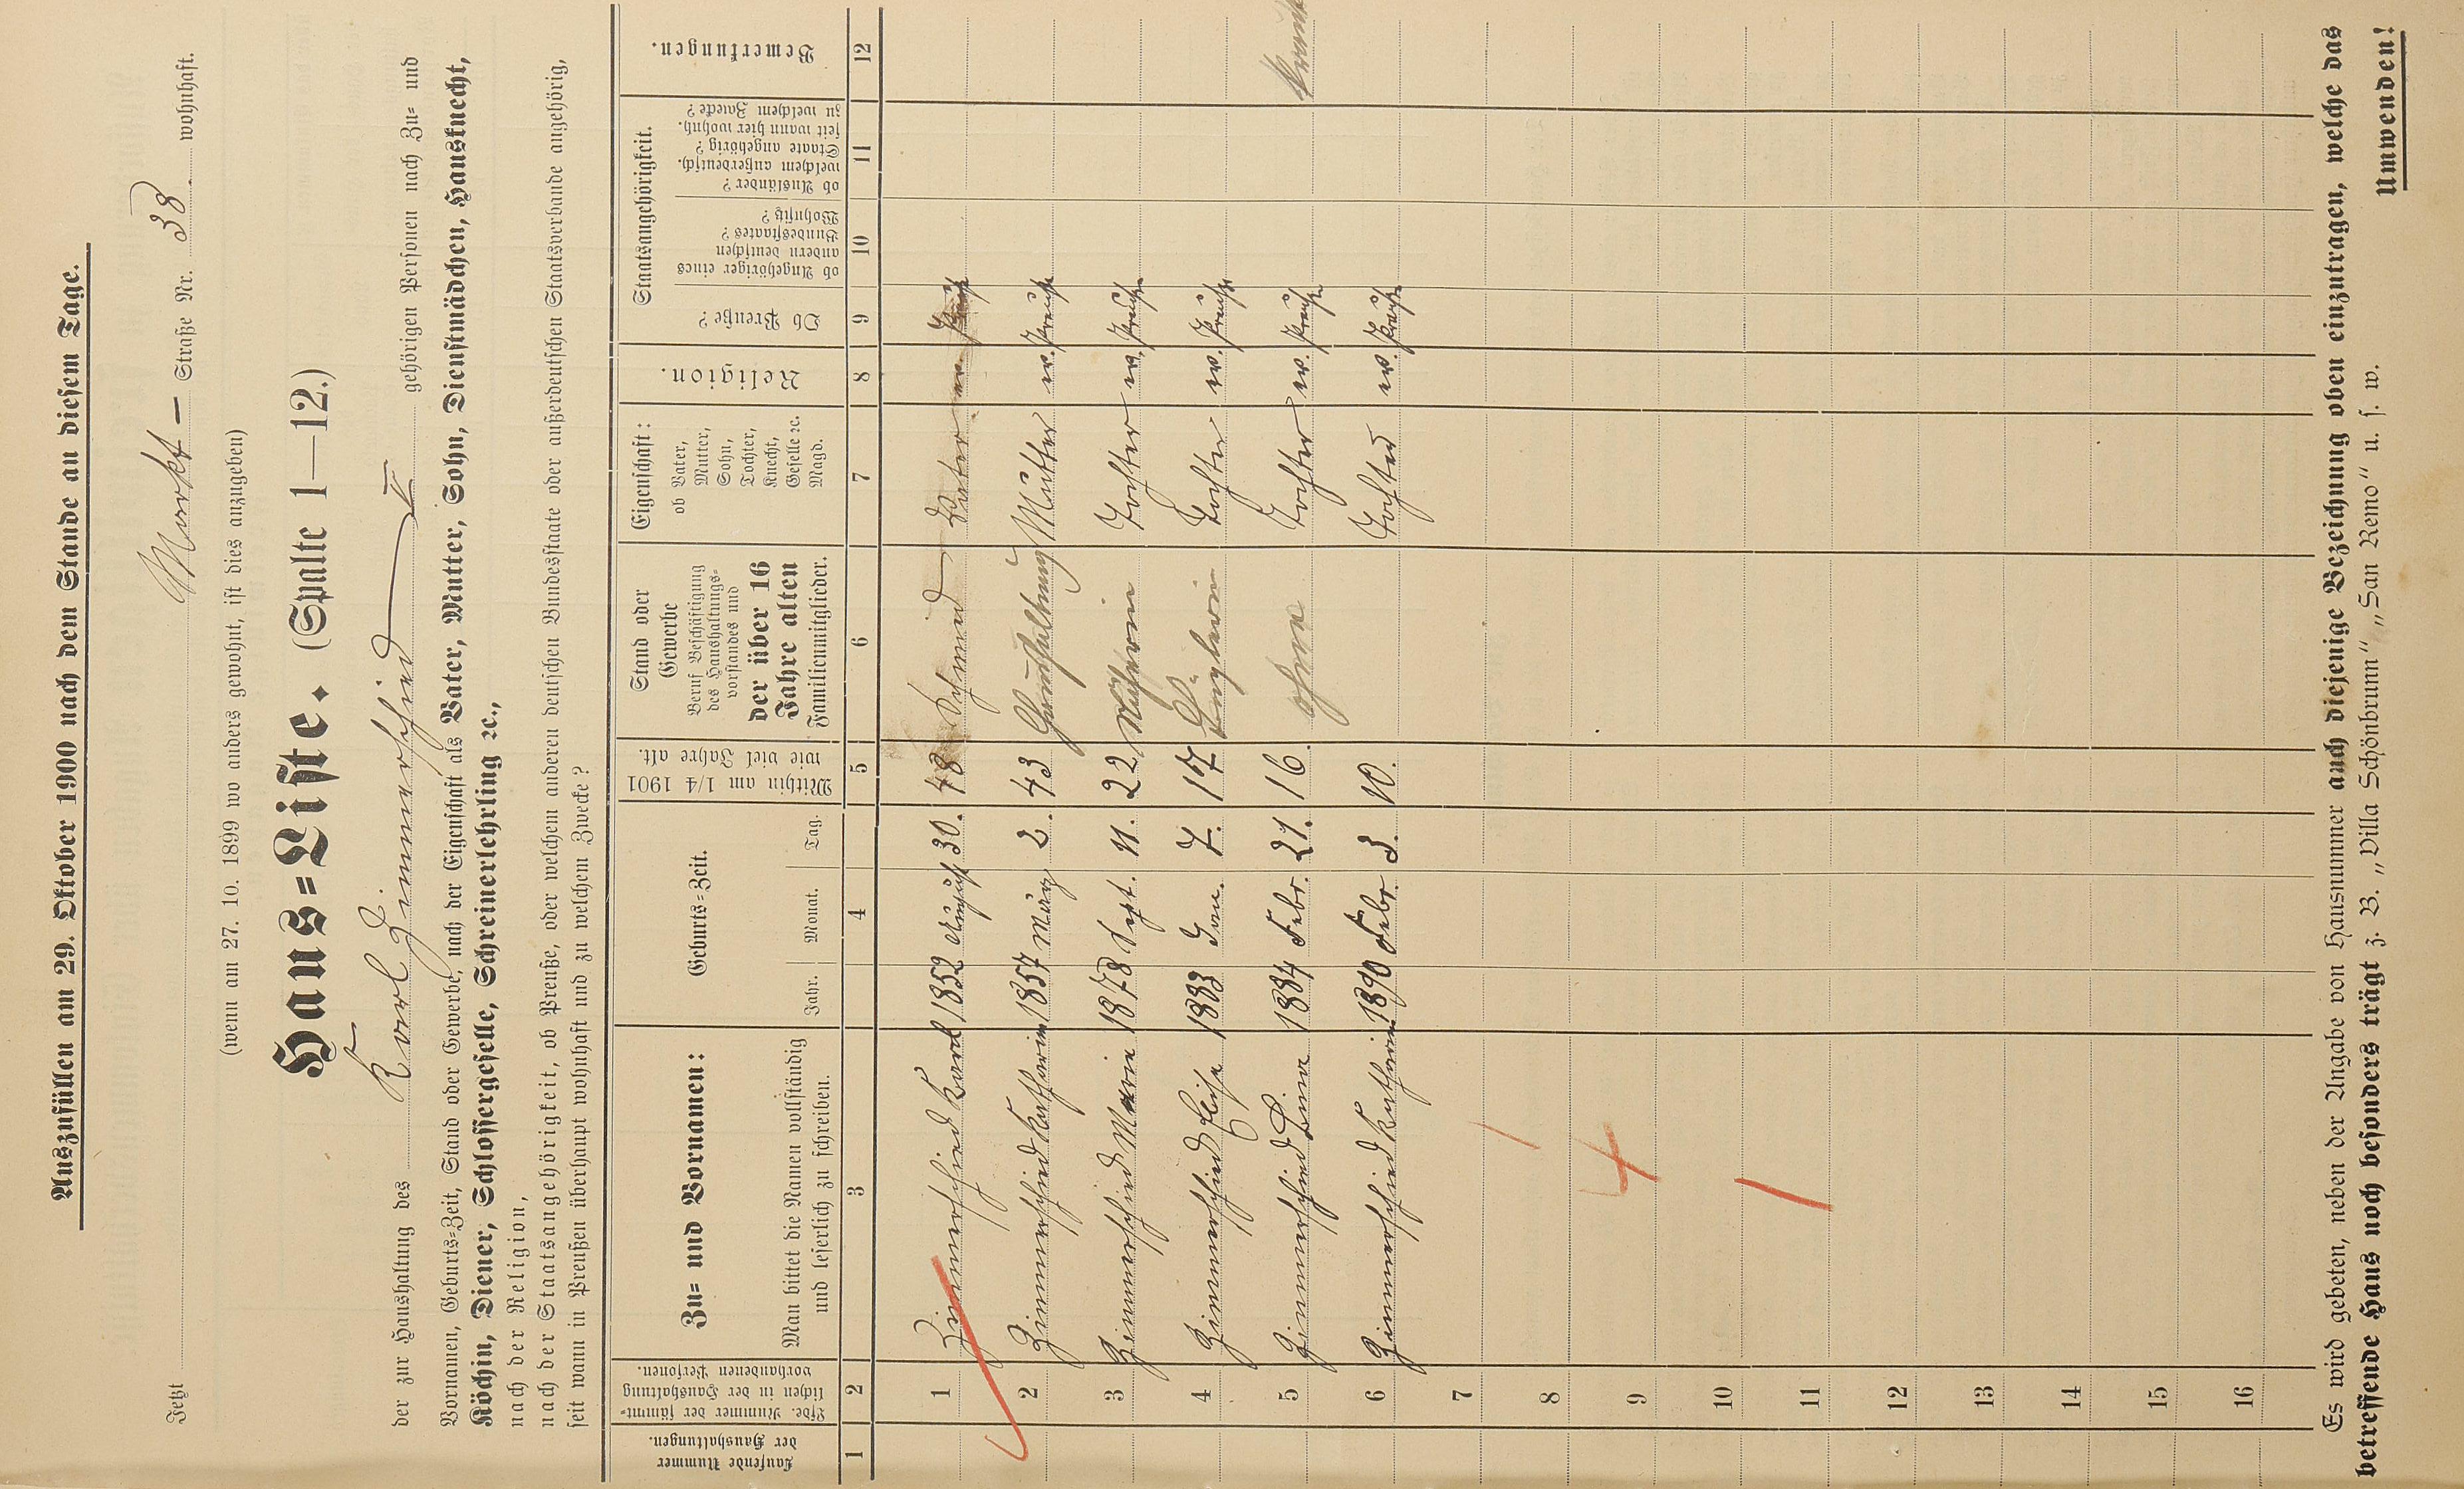 Auszufüllen am 29. Oktober 1900 nach dem Stande an diesem Tage.
Jetzt Markt- Straße Nr. 38. wohnhaft.
(wenn am 27. 10. 1899 wo anders gewohnt, ist dies anzugeben)
Haus=Liste. (Spalte 1—12.)
der zur Haushaltung des Karl Zimmerschied II gehörigen Personen nach Zu= und
Vornamen, Geburts=Zeit, Stand oder Gewerbe, nach der Eigenschaft als Vater, Mutter, Sohn, Dienstmädchen, Hausknecht,
Köchin, Diener, Schlossergeselle, Schreinerlehrling ꝛc.,
nach der Religion,
nach der Staatsangehörigkeit, ob Preuße, oder welchem anderen deutschen Bundesstaate oder außerdeutschen Staatsverbande angehörig,
seit wann in Preußen überhaupt wohnhaft und zu welchem Zwecke?
Laufende Nummer der Haushaltungen.
Lfde. Nummer der sämmtlichen in der Haushaltung vorhandenen Personen.
Zu= und Vornamen:
Man bittet die Namen vollständig
und leserlich zu schreiben.
Geburts=Zeit.
Jahr. Monat. Tag.
Mithin am 1/4 1901
wie viel Jahre alt.
Stand oder
Gewerbe
Beruf Beschäftigung
des Haushaltungs=
vorstandes und
der über 16
Jahre alten
Familienmitglieder.
Eigenschaft:
ob Vater,
Mutter,
Sohn,
Tochter,
Knecht,
Geselle ꝛc.
Magd.
Religion.
Staatsangehörigkeit.
Ob Preuße?
ob Angehöriger eines
andern deutschen
Bundesstaates?
Wohnsitz?
ob Ausländer?
welchem außerdeutsch.
Staate angehörig?
seit wann hier wohnh.
zu welchem Zwecke?
Bemerkungen.
1 2 3 4 5 6 7 8 9 10 11 12
1 Zimmerschied Karl 1852 August 30. 48 Schmied Vater ev. Preuße
2 Zimmerschied Katharine 1857 März 2. 43 Haushaltung Mutter ev. Preuße
3 Zimmerschied Marie 1878 Sept. 11. 22 Näherin Tochter ev. Preuße
4 Zimmerschied Elise 1883 Jan. 7. 17 Büglerin Tochter ev. Preuße
5 Zimmerschied Lina 1884 Febr. 21. 16. ohne Tochter ev. Preuße
6 Zimmerschied Katharine 1890 Febr. 3. 10. Tochter ev. Preuße
7
8
9 4
10
11
12
13
14
15
16
Es wird gebeten, neben der Angabe von Hausnummer auch diejenige Bezeichnung oben einzutragen, welche das
betreffende Haus noch besonders trägt z. B. „Villa Schönbrunn" „San Remo" u. s. w.
Umwenden!